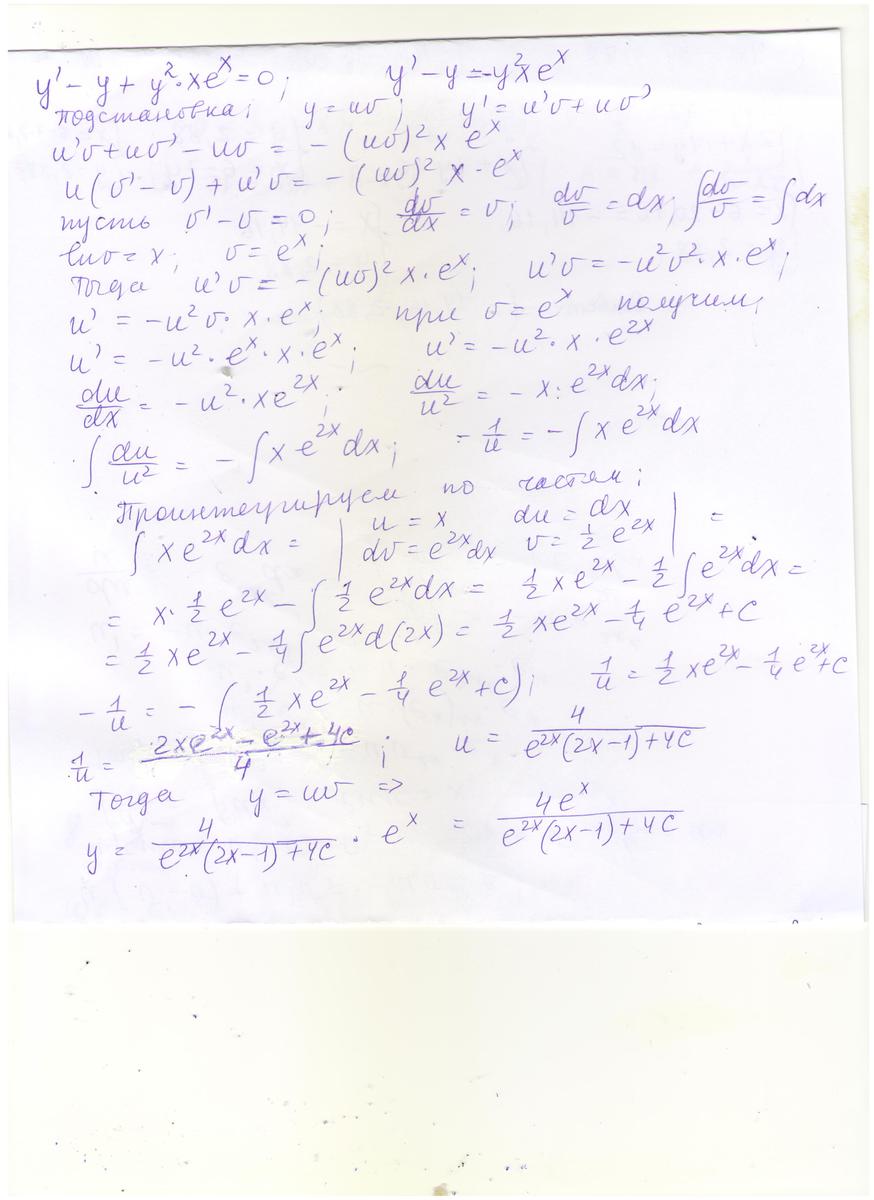 y' - y + y²·xeˣ = 0; y' - y = -y²xeˣ
подстановка; y = uv; y' = u'v + uv'
u'v + uv' - uv = - (uv)² x eˣ
u(v' - v) + u'v = - (uv)² x · eˣ
пусть v' - v = 0; dv/dx = v; dv/v = dx; ∫dv/v = ∫dx
lnv = x; v = eˣ;
тогда u'v = -(uv)² x · eˣ; u'v = -u²v² · x · eˣ;
u' = -u²v · x · eˣ; при v = eˣ получим;
u' = -u² · eˣ · x · eˣ; u' = -u² · x · e²ˣ
du/dx = -u² · xe²ˣ; du/u² = - x · e²ˣdx;
∫ du/u² = - ∫ x e²ˣdx; - 1/u = - ∫ x e²ˣdx
Проинтегрируем по частям;
∫ xe²ˣdx = | u = x du = dx dv = e²ˣdx v = 1/2 e²ˣ | =
= x · 1/2 e²ˣ - ∫ 1/2 e²ˣdx = 1/2 xe²ˣ - 1/2 ∫ e²ˣdx =
= 1/2 xe²ˣ - 1/4 ∫ e²ˣd(2x) = 1/2 xe²ˣ - 1/4 e²ˣ + C
- 1/u = - ( 1/2 xe²ˣ - 1/4 e²ˣ + C); 1/u = 1/2 xe²ˣ - 1/4 e²ˣ + C
1/u = (2xe²ˣ - e²ˣ + 4C)/4 ; u = 4/(e²ˣ(2x-1)+4C)
Тогда y = uv =>
y = 4/(e²ˣ(2x-1)+4C) · eˣ = 4eˣ/(e²ˣ(2x-1)+4C)